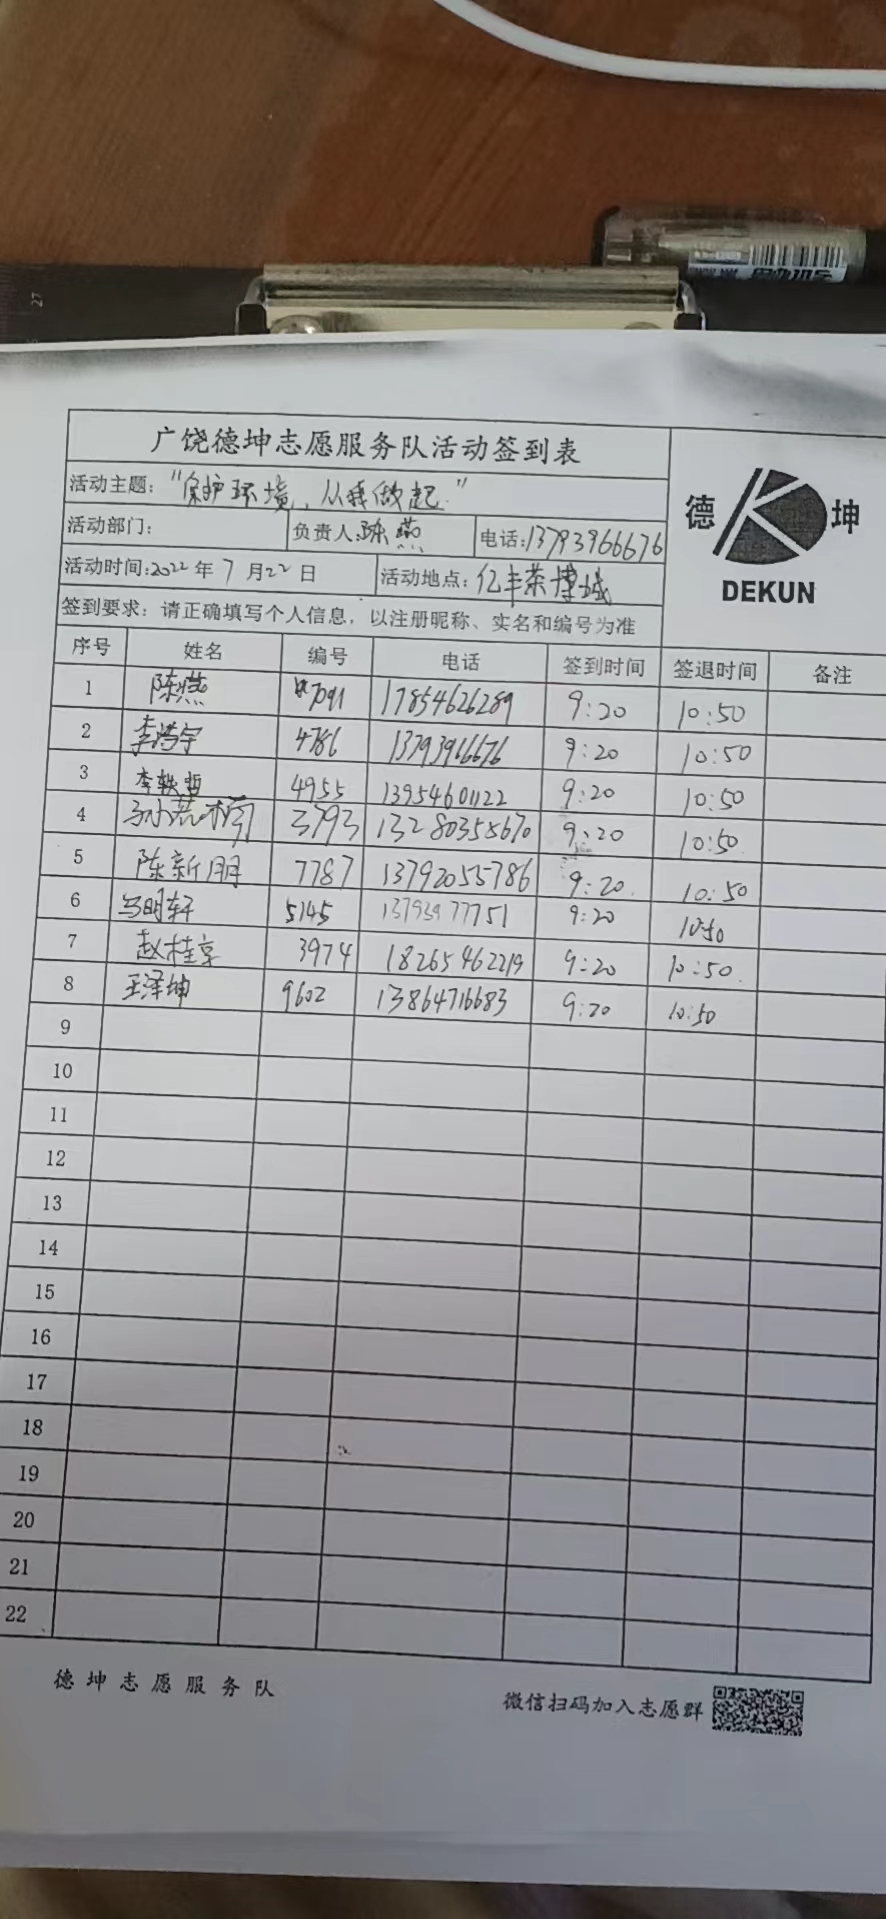 广饶德坤志愿服务队活动签到表
德 坤
DEKUN
活动主题："保护环境，从我做起"
活动部门： 负责人：陈燕 电话：13793966676
活动时间：2022年7月22日 活动地点：亿丰荣博城
签到要求：请正确填写个人信息，以注册昵称、实名和编号为准
序号 姓名 编号 电话 签到时间 签退时间 备注
1 陈燕 7091 17854626289 9:20 10:50
2 李浩宇 4786 13793966676 9:20 10:50
3 李轶哲 4955 13954601122 9:20 10:50
4 3793 13280358670 9:20 10:50
5 陈新朋 7787 13792055786 9:20 10:50
6 马明轩 5145 13793977751 9:20 10:50
7 赵桂享 3974 18265462219 9:20 10:50
8 王泽坤 9602 13864716683 9:20 10:50
9
10
11
12
13
14
15
16
17
18
19
20
21
22
德坤志愿服务队 微信扫码加入志愿群